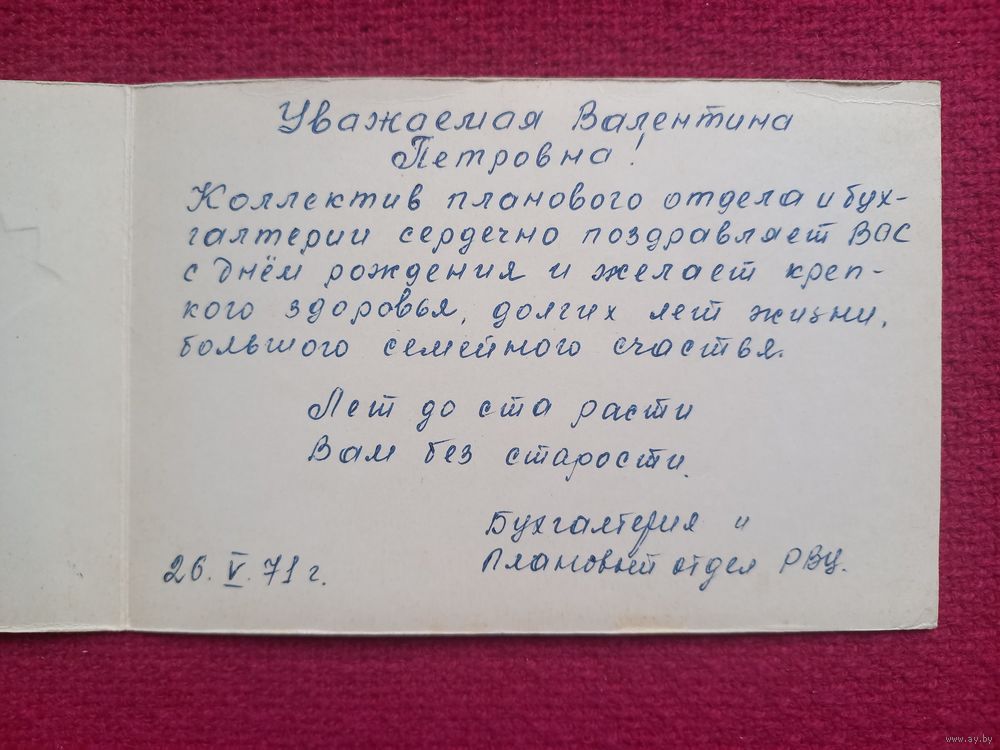 Уважаемая Валентина
Петровна!
Коллектив планового отдела и бух-
галтерии сердечно поздравляет Вас
с днём рождения и желает креп-
кого здоровья, долгих лет жизни,
большого семейного счастья.
Лет до ста расти
Вам без старости.
Бухгалтерия и
плановый отдел РВЦ.
26.V.71 г.
www.ay.by